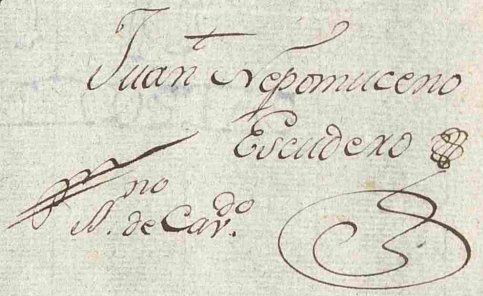 Juan Nepomuceno
Escudero
no
N. de Cav.do